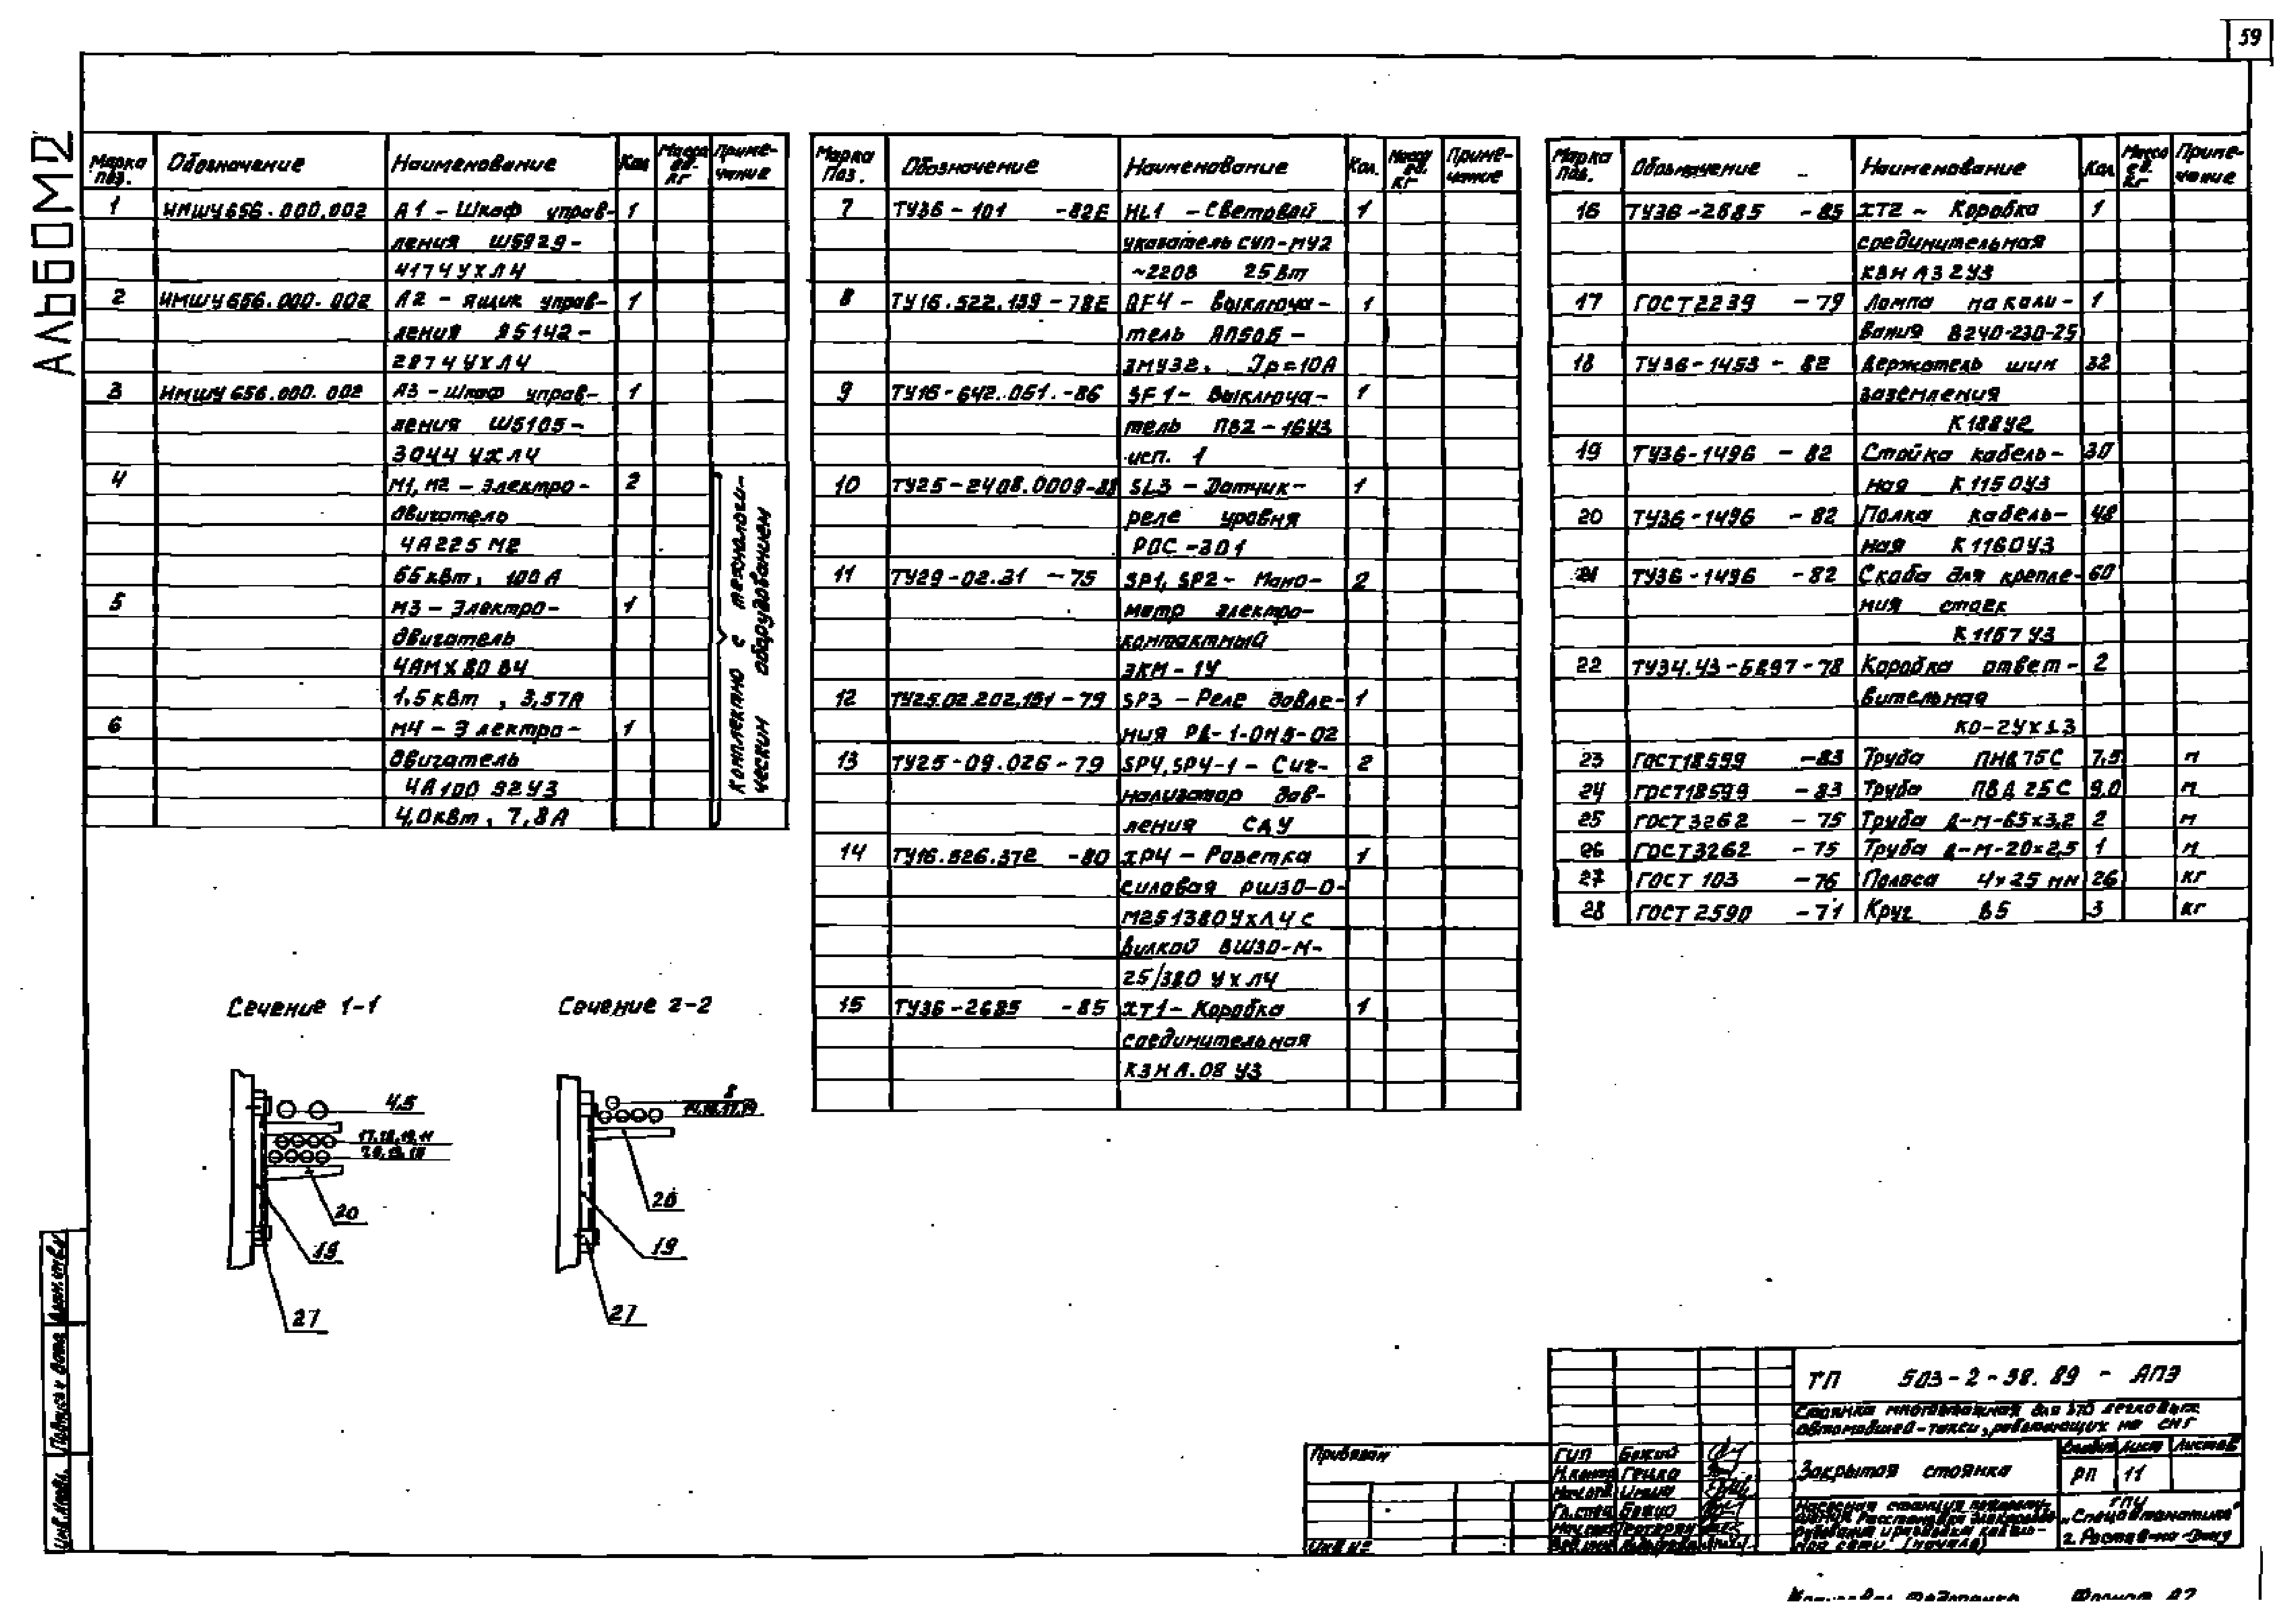 59
АЛЬБОМ 2
Марка поз. Обозначение Наименование Кол Масса ед. кг Приме-чание
1 ИМШУ656.000.002 А1 – Шкаф управ- 1
ления Ш5929-
4174УХЛ4
2 ИМШУ656.000.002 А2 – ящик управ- 1
ления Я5142-
2874УХЛ4
3 ИМШУ656.000.002 А3 – Шкаф управ- 1
ления Ш5105-
3044 УХЛ4
4 М1, М2 – Электро- 2
двигатель
4А225М2
55кВт, 100А
5 М3 – Электро- 1
двигатель
4АМХ80В4
1,5кВт, 3,57А
6 М4 – Электро- 1
двигатель
4А100S2У3
4,0кВт, 7,8А
Комплектно с технологи-
ческим оборудованием
Марка Поз. Обозначение Наименование Кол. Масса ед. кг Приме-чание
7 ТУ36-101 -82Е HL1 – Световой 1
указатель СУП-МУ2
~220В 25Вт
8 ТУ16.522.139-78Е QF4 – Выключа- 1
тель АП50Б-
3МУ32, Jр=10А
9 ТУ16-642.051.-86 SF1 – Выключа- 1
тель ПВ2-16У3
исп. 1
10 ТУ25-2408.0009-88 SL3 – Датчик- 1
реле уровня
РОС-301
11 ТУ29-02.31 -75 SP1, SP2 – Мано- 2
метр электро-
контактный
ЭКМ-1У
12 ТУ25.02.202.151-79 SP3 – Реле давле- 1
ния РД-1-ОМ5-02
13 ТУ25-09.026-79 SP4, SP4-1 – Сиг- 2
нализатор дав-
ления СДУ
14 ТУ16.526.372 -80 XP4 – Розетка 1
силовая РШ30-0-
М251380УХЛ4 с
вилкой ВШ30-М-
25/380 УХЛ4
15 ТУ36-2685 -85 XT1 – Коробка 1
соединительная
КЗНА.08 У3
Марка Поз. Обозначение Наименование Кол. Масса ед. кг Приме-чание
16 ТУ36-2685 -85 XT2 – Коробка 1
соединительная
КЗНА32У3
17 ГОСТ2239 -79 Лампа накали- 1
вания В240-230-25
18 ТУ36-1453 -82 Держатель шин 32
заземления
К188У2
19 ТУ36-1496 -82 Стойка кабель- 30
ная К1150У3
20 ТУ36-1496 -82 Полка кабель- 48
ная К1160У3
21 ТУ36-1496 -82 Скоба для крепле- 60
ния стоек
К1157У3
22 ТУ34.43-5897-78 Коробка ответ- 2
вительная
КО-2УХЛ3
23 ГОСТ18599 -83 Труба ПНД 75С 7,5 м
24 ГОСТ18599 -83 Труба ПВД 25С 9,0 м
25 ГОСТ3262 -75 Труба Д-М-65х3,2 2 м
26 ГОСТ3262 -75 Труба Д-М-20х2,5 1 м
27 ГОСТ 103 -76 Полоса 4х25 мм 26 кг
28 ГОСТ 2590 -71 Круг В5 3 кг
Сечение 1-1
4,5
20
19
27
Сечение 2-2
8
20
19
27
Инв.№подл. Подпись и дата Взам.инв.№
Привязан
Инв.№
ТП 503-2-38.89 – АПЭ
Стоянка многоэтажная для 370 легковых
автомобилей-такси, работающих на СНГ
ГИП Божко
Н.контр Генка
Нач.отд
Гл.спец Божко
Закрытая стоянка
Стадия Лист Листов
РП 11
Насосная станция
(начало)
ГПУ
„Спецавтоматика"
г. Ростов-на-Дону
Формат А2